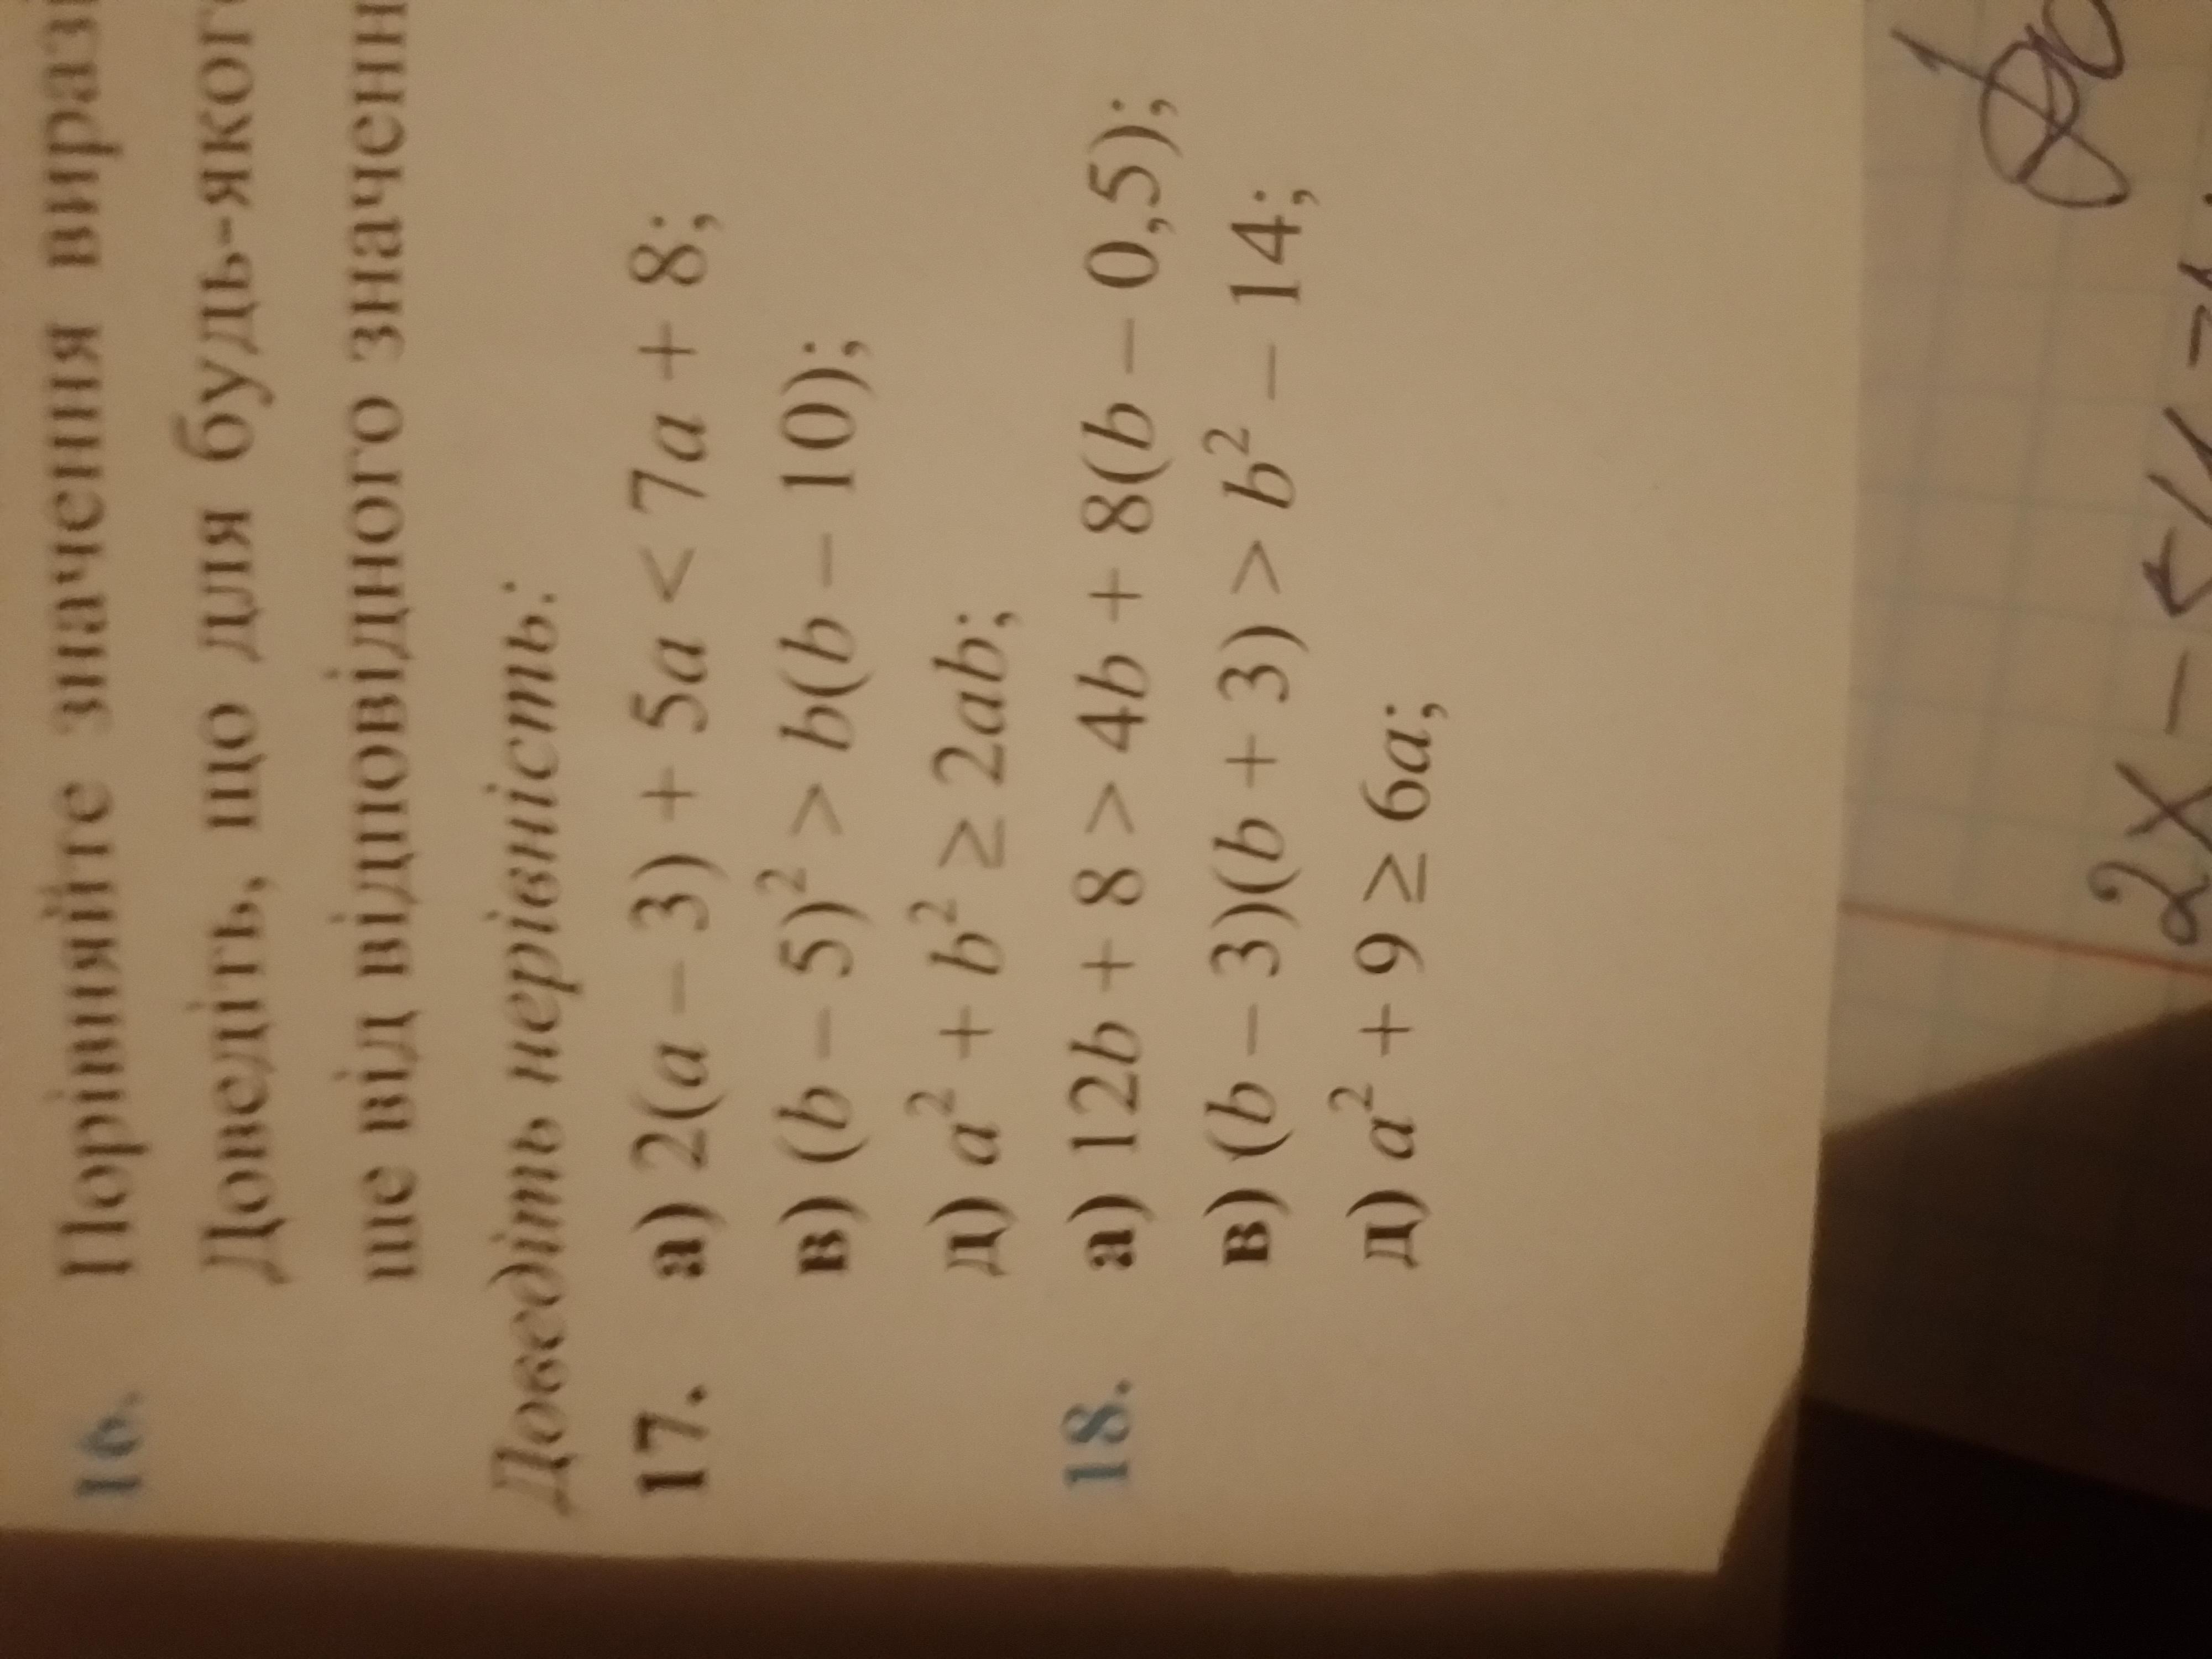 16. Порівняйте значення
Доведіть, що для будь-
ше від відповідного
Доведіть нерівність:
17. а) 2(a − 3) + 5a < 7a + 8;
в) (b − 5)² > b(b − 10);
д) a² + b² ≥ 2ab;
18. а) 12b + 8 > 4b + 8(b − 0,5);
в) (b − 3)(b + 3) > b² − 14;
д) a² + 9 ≥ 6a;
2x −